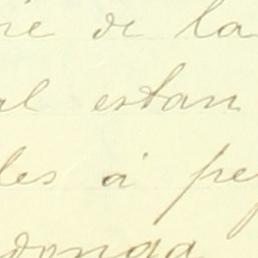 de la
al estan
les á pe
donga